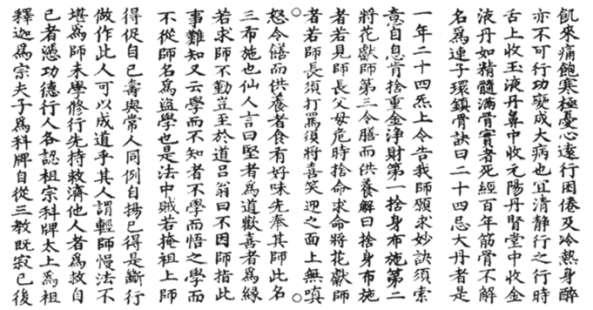 飢來痛飽寒極憂心遠行困倦及冷熱身醉
亦不可行功變成大病也宜清靜行之行時
舌上收玉液丹鼻中收元陽丹腎堂中收金
液丹如精髓滿骨實者死經百年筋骨不解
名爲連子環鎖骨訣曰二十四忌大丹者是
一年二十四炁上令告我師願求妙訣須索
意自息肯捨重金淨財第一捨身布施第二
將花獻師第三令膳而供養解曰捨身布施
者若見師長父母危時捨命求命將花獻師
者若師長須打罵須將喜笑迎之面上無嗔
怒令饍而供養者食有好味先奉其師此名
三布施也仙人言曰堅者爲道歡喜者爲緣
若求師不勤豈至於道呂翁曰不因師指此
事難知又云學而不知者不學而悟之學而
不從師名爲盜學也是法中賊若掩祖上師
得促自己壽與常人同例自揚己得是斷行
做作此人可以成道乎其人謂輕師慢法不
堪爲師未學修行先持救濟他人者爲救自
己者憑功德行人各認祖宗科牌太上爲祖
釋迦爲宗夫子爲科牌自從三教既寂已後